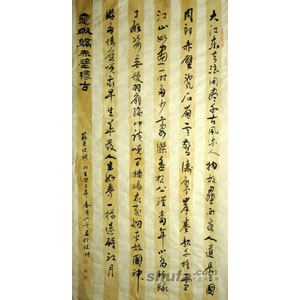 大江東去浪淘盡千古風流人物故壘西邊人道是三國
周郎赤壁亂石崩雲驚濤裂岸捲起千堆雪
江山如畫一時多少豪傑遙想公瑾當年小喬初嫁
了雄姿英發羽扇綸巾談笑間檣櫓灰飛煙滅故國神
遊多情應笑我早生華髮人生如夢一樽還酹江月
念奴嬌赤壁懷古
蘇東坡詞
shufa.com